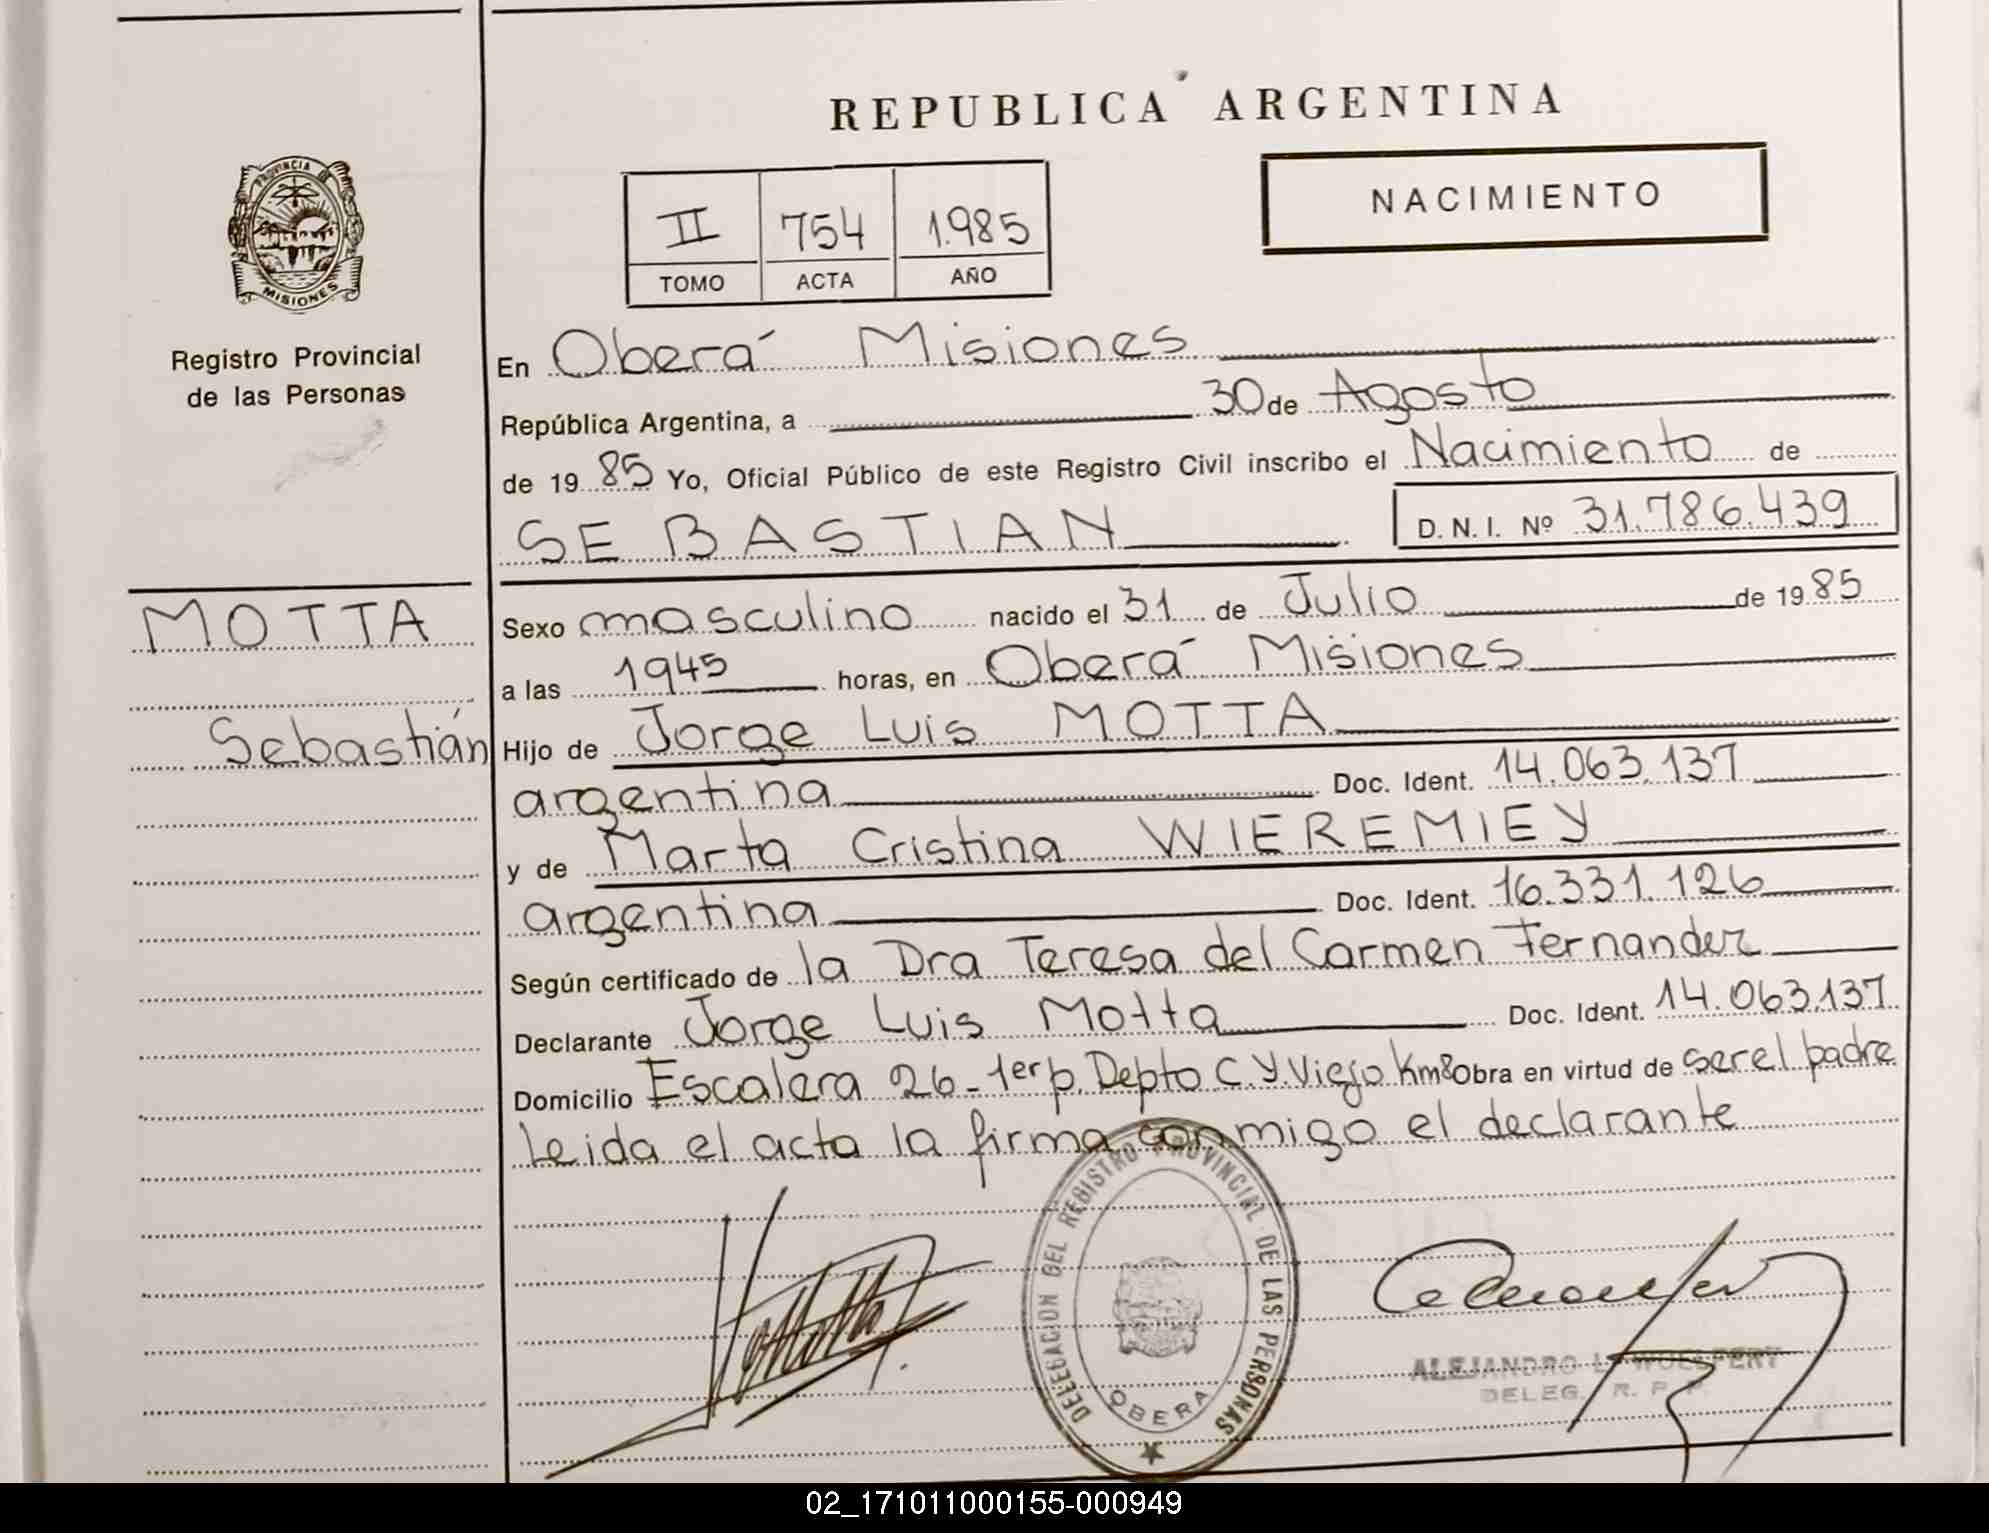 REPUBLICA ARGENTINA
PROVINCIA
MISIONES
Registro Provincial
de las Personas
II 754 1.985
TOMO ACTA AÑO
NACIMIENTO
En Oberá Misiones
República Argentina, a 30 de Agosto
de 19 85 Yo, Oficial Público de este Registro Civil inscribo el Nacimiento de
SEBASTIAN D. N. I. Nº 31.786.439
MOTTA
Sebastián
Sexo masculino nacido el 31 de Julio de 19 85
a las 1945 horas, en Oberá Misiones
Hijo de Jorge Luis MOTTA
argentina Doc. Ident. 14.063.137
y de Marta Cristina WIEREMIEY
argentina Doc. Ident. 16.331.126
Según certificado de la Dra Teresa del Carmen Fernandez
Declarante Jorge Luis Motta Doc. Ident. 14.063.137
Domicilio Escalera 26-1er p. Depto C Y. Viejo Km8 Obra en virtud de ser el padre
Leida el acta la firma conmigo el declarante
DELEGACION DEL REGISTRO PROVINCIAL DE LAS PERSONAS
OBERA
ALEJANDRO L. WUELFERT
DELEG. R. P. P.
02_171011000155-000949